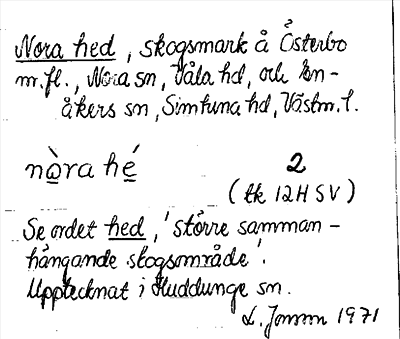 Nora hed, skogsmark å Österbo
m.fl., Nora sn, Våla hd, och En-
åkers sn, Simtuna hd, Västm. l.
nòra hé
2
(tk 12H SV)
Se ordet hed, 'större samman-
hängande skogsområde'.
Upptecknat i Huddunge sn.
L. Jonson 1971